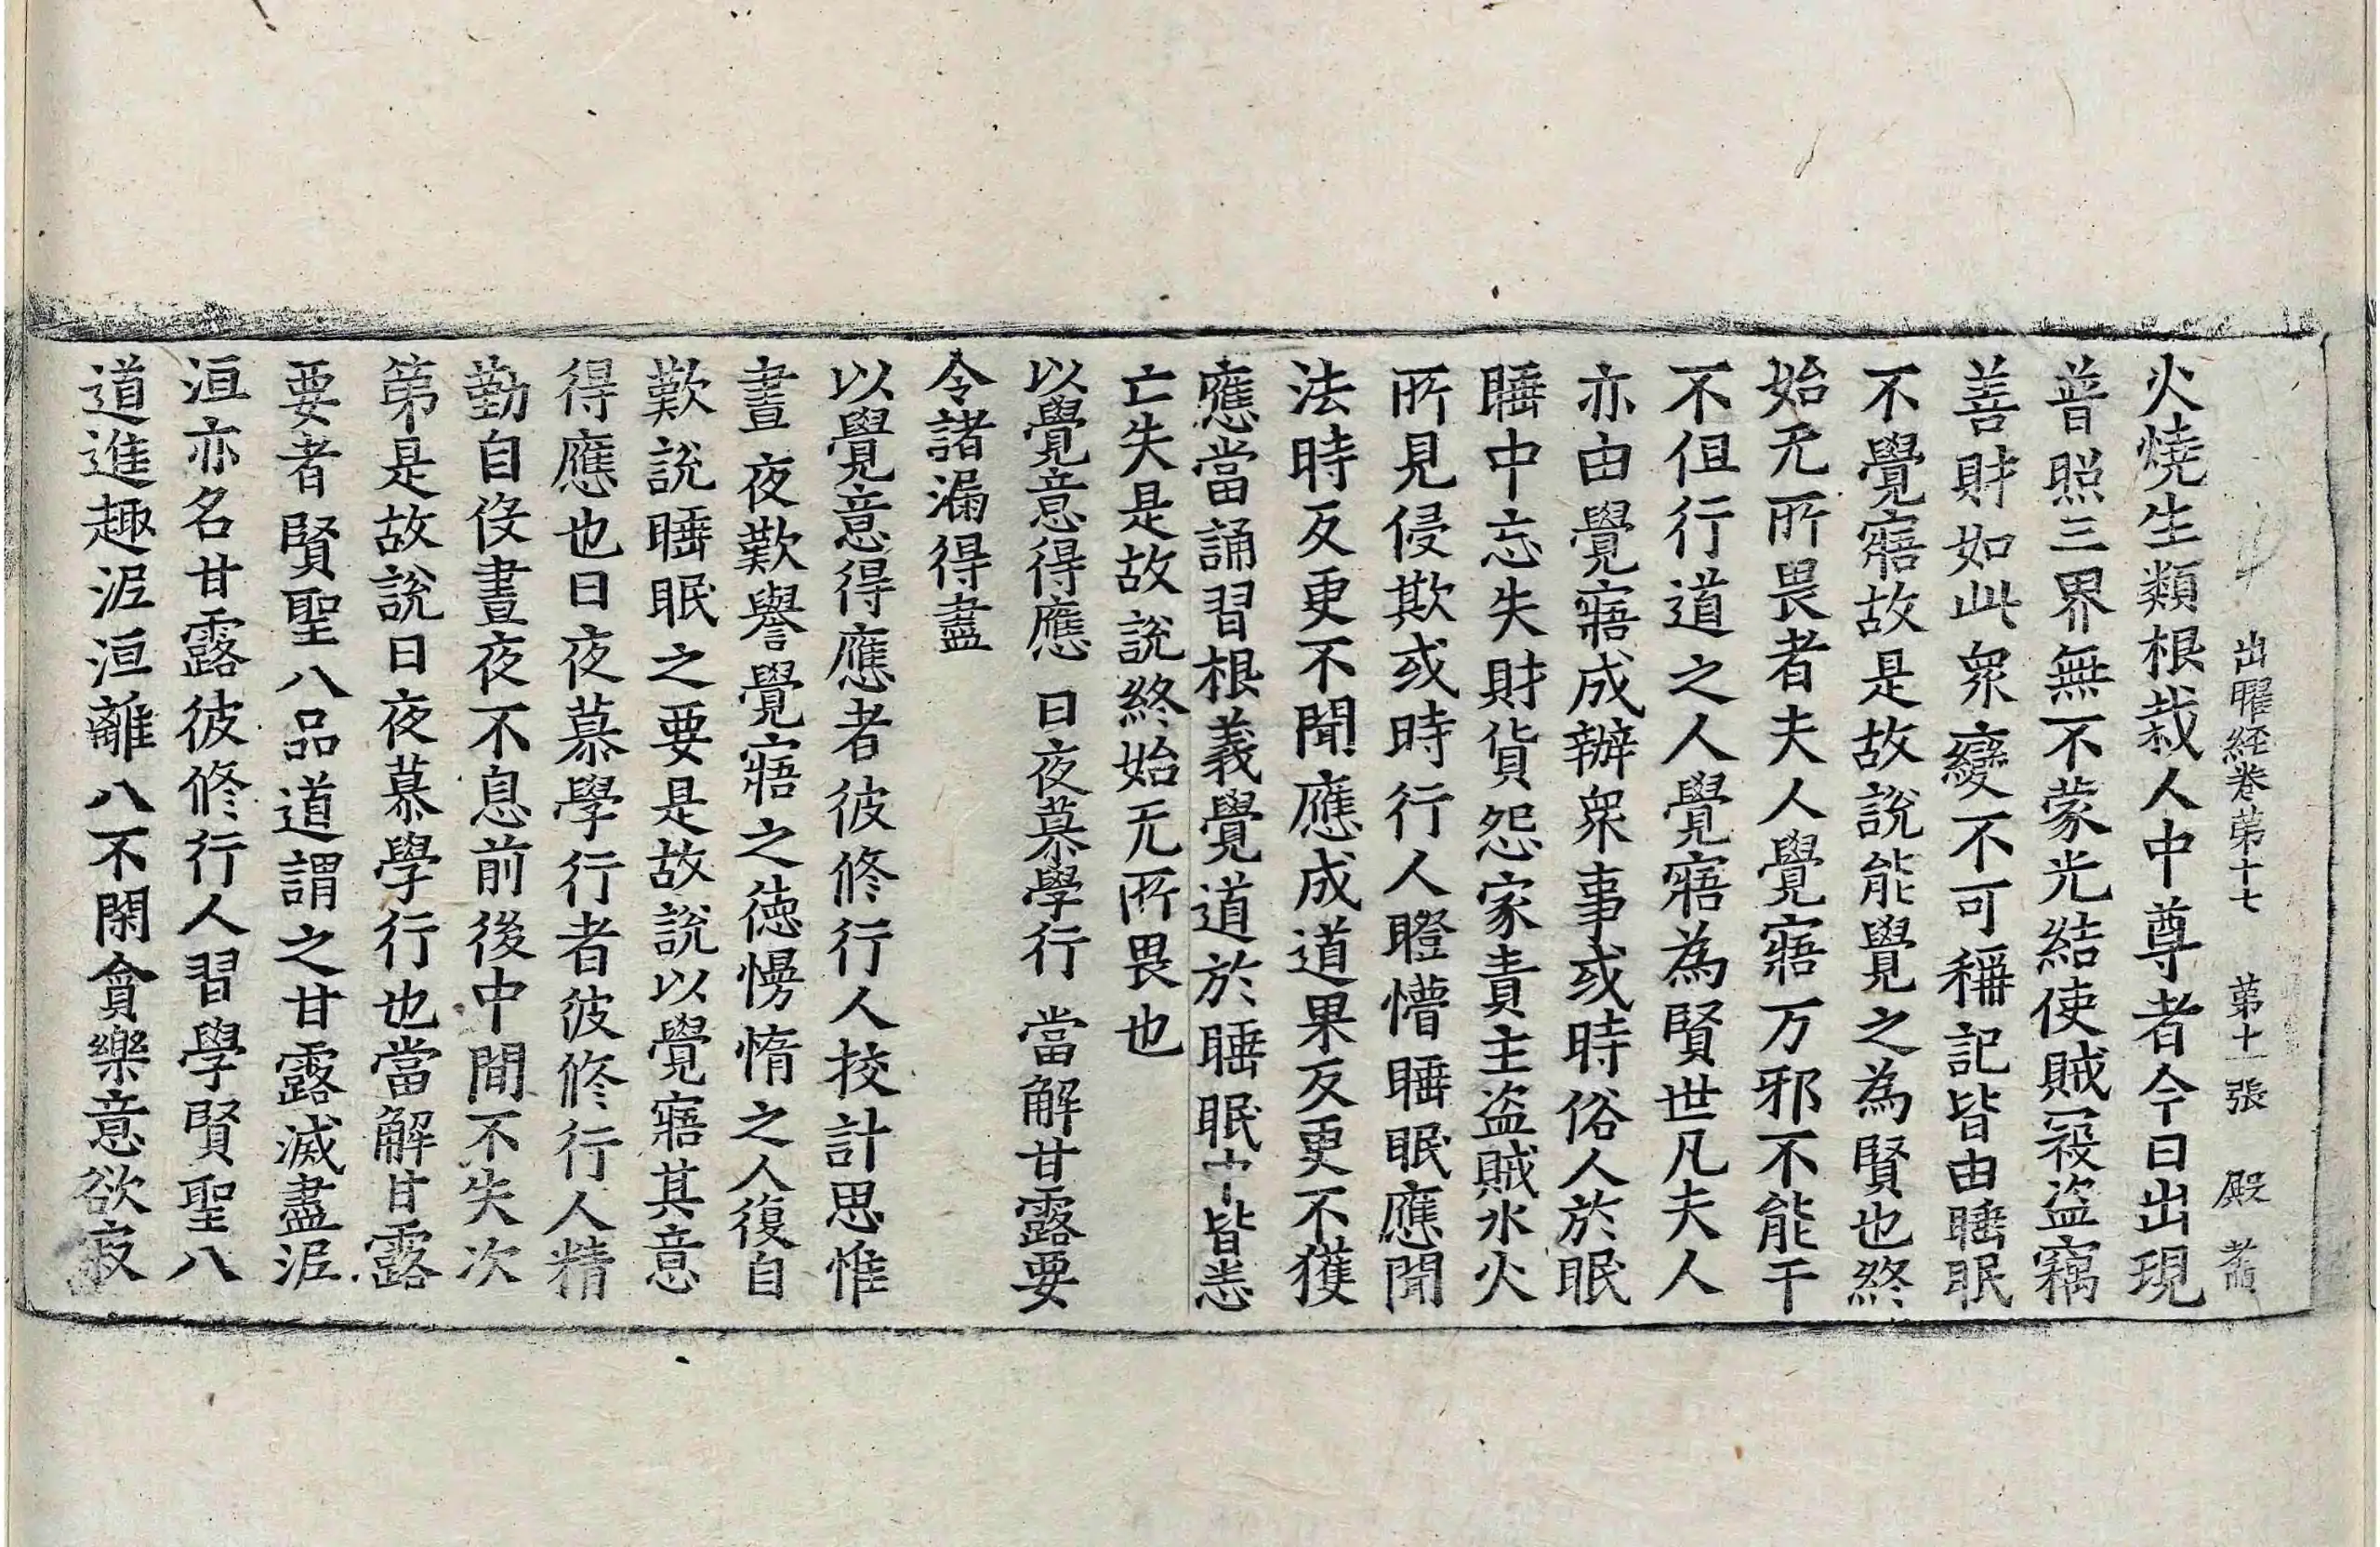 出曜経卷苐十七 苐十一張 殿
火燒生類根栽人中尊者今日出現
普照三界無不蒙光結使賊冦盜竊
善財如此衆變不可稱記皆由睡眠
不覺寤故是故說能覺之為賢也終
始无所畏者夫人覺寤万邪不能干
不但行道之人覺寤為賢世凡夫人
亦由覺寤成辦衆事或時俗人於眠
睡中忘失財貨怨家責主盜賊水火
所見侵欺或時行人瞪懵睡眠應聞
法時反更不聞應成道果反更不獲
應當誦習根義覺道於睡眠中皆悉
亡失是故說終始无所畏也
以覺意得應 日夜慕學行 當解甘露要
令諸漏得盡
以覺意得應者彼修行人挍計思惟
晝夜歎譽覺寤之徳慢惰之人復自
歎說睡眠之要是故說以覺寤其意
得應也日夜慕學行者彼修行人精
勤自役晝夜不息前後中間不失次
第是故說日夜慕學行也當解甘露
要者賢聖八品道謂之甘露滅盡泥
洹亦名甘露彼修行人習學賢聖八
道進趣泥洹離八不閑貪樂意欲寂